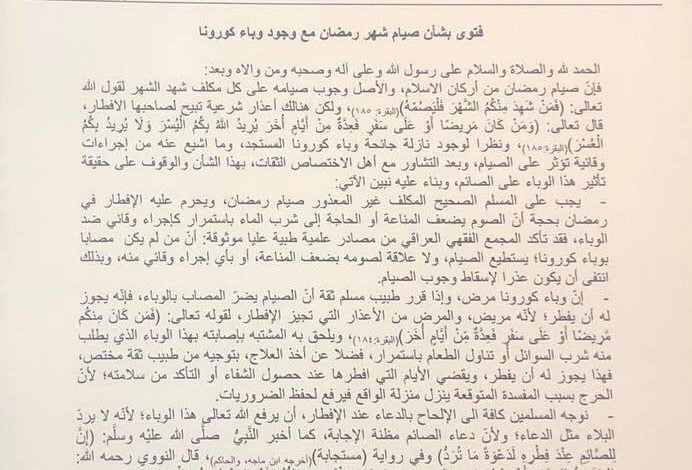 فتوى بشأن صيام شهر رمضان مع وجود وباء كورونا
الحمد لله والصلاة والسلام على رسول الله وعلى آله وصحبه ومن والاه وبعد:
فإنّ صيام رمضان من أركان الاسلام، والأصل وجوب صيامه على كل مكلف شهد الشهر لقول الله
تعالى: (فَمَنْ شَهِدَ مِنْكُمُ الشَّهْرَ فَلْيَصُمْهُ)(البقرة: ١٨٥)، ولكن هنالك أعذار شرعية تبيح لصاحبها الافطار،
قال تعالى: (وَمَنْ كَانَ مَرِيضًا أَوْ عَلَى سَفَرٍ فَعِدَّةٌ مِنْ أَيَّامٍ أُخَرَ يُرِيدُ اللَّهُ بِكُمُ الْيُسْرَ وَلَا يُرِيدُ بِكُمُ
الْعُسْرَ)(البقرة: ١٨٥)، ونظرا لوجود نازلة جائحة وباء كورونا المستجد، وما اشيع عنه من إجراءات
وقائية تؤثر على الصيام، وبعد التشاور مع أهل الاختصاص الثقات، بهذا الشأن والوقوف على حقيقة
تأثير هذا الوباء على الصائم، وبناء عليه نبين الآتي:
- يجب على المسلم الصحيح المكلف غير المعذور صيام رمضان، ويحرم عليه الإفطار في
رمضان بحجة أنّ الصوم يضعف المناعة أو الحاجة إلى شرب الماء باستمرار كإجراء وقائي ضد
الوباء، فقد تأكد المجمع الفقهي العراقي من مصادر علمية طبية عليا موثوقة: أنّ من لم يكن مصابا
بوباء كورونا؛ يستطيع الصيام، ولا علاقة لصومه بضعف المناعة، أو بأي إجراء وقائي منه، وبذلك
انتفى أن يكون عذرا لإسقاط وجوب الصيام.
- إنّ وباء كورونا مرض، وإذا قرر طبيب مسلم ثقة أنّ الصيام يضرّ المصاب بالوباء، فإنّه يجوز
له أن يفطر؛ لأنّه مريض، والمرض من الأعذار التي تجيز الإفطار، لقوله تعالى: (فَمَن كَانَ مِنكُم
مَّرِيضًا أَوْ عَلَى سَفَرٍ فَعِدَّةٌ مِّنْ أَيَّامٍ أُخَرَ)(البقرة:١٨٤)، ويلحق به المشتبه بإصابته بهذا الوباء الذي يطلب
منه شرب السوائل أو تناول الطعام باستمرار، فضلا عن أخذ العلاج، بتوجيه من طبيب ثقة مختص،
فهذا يجوز له أن يفطر، ويقضي الأيام التي افطرها عند حصول الشفاء أو التأكد من سلامته؛ لأنّ
الحرج بسبب المفسدة المتوقعة ينزل منزلة الواقع فيرفع لحفظ الضروريات.
- نوجه المسلمين كافة الى الإلحاح بالدعاء عند الإفطار، أن يرفع الله تعالى هذا الوباء؛ لأنّه لا يردّ
البلاء مثل الدعاء؛ ولأنّ دعاء الصائم مظنة الإجابة، كما أخبر النّبيُّ صلَّى الله عليْه وسلَّم: (إِنَّ
لِلصَّائِمِ عِنْدَ فِطْرِهِ لَدَعْوَةً مَا تُرَدُّ) وفي رواية (مستجابة)(أخرجه ابن ماجه، والحاكم)، قال النووي رحمه الله: